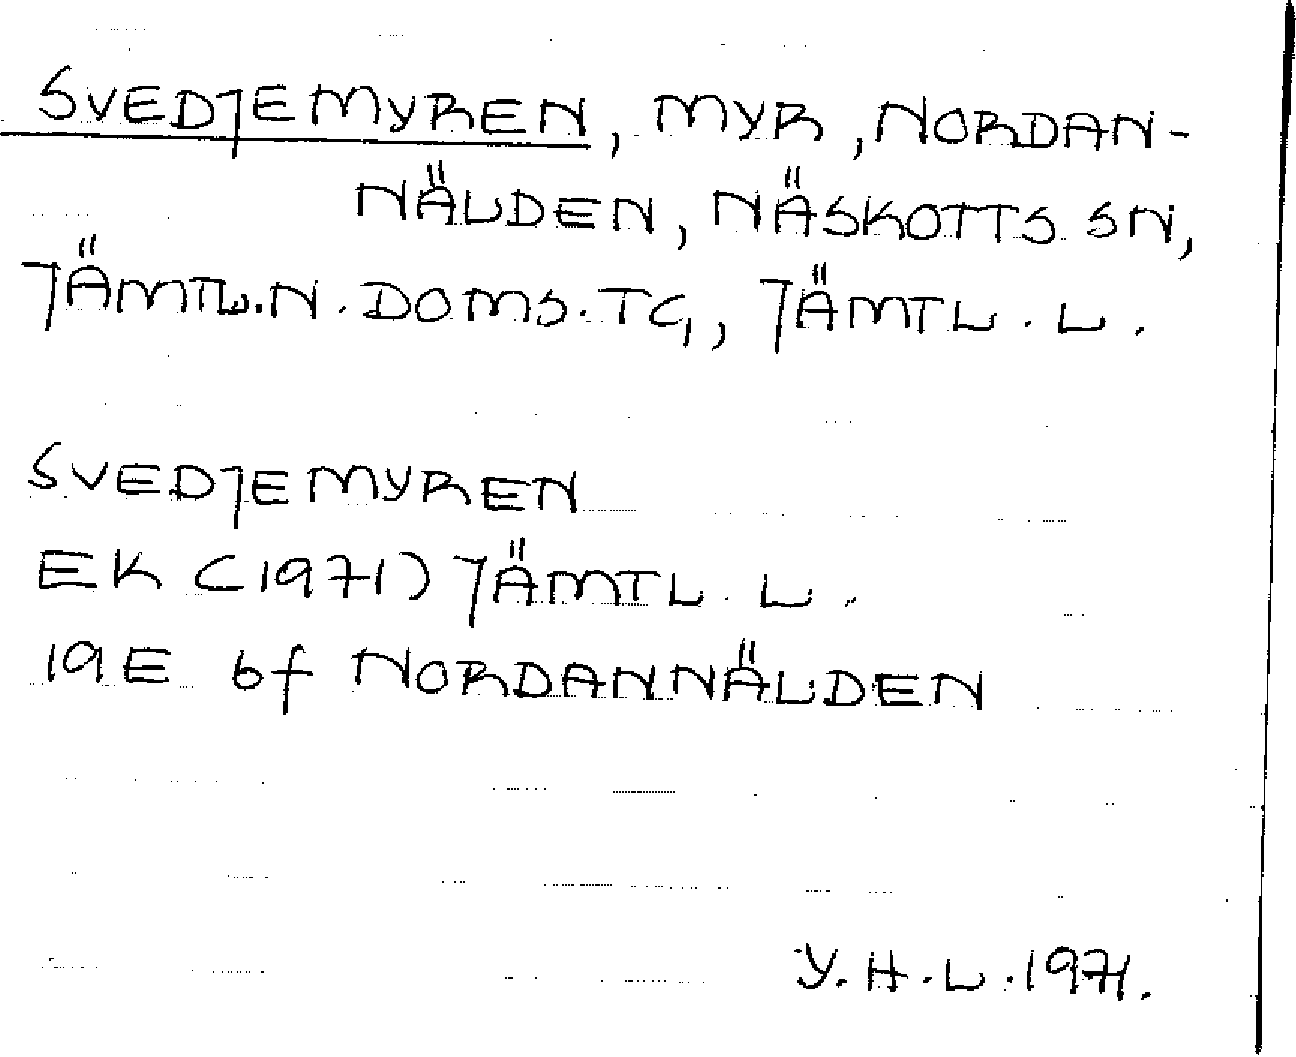 SVEDJEMYREN, MYR, NORDAN-
NÄLDEN, NÄSKOTTS SN,
JÄMTL.N.DOMS.TG, JÄMTL.L.
SVEDJEMYREN
EK (1971) JÄMTL. L.
19E 6f NORDANNÄLDEN
Y.H.L.1971.